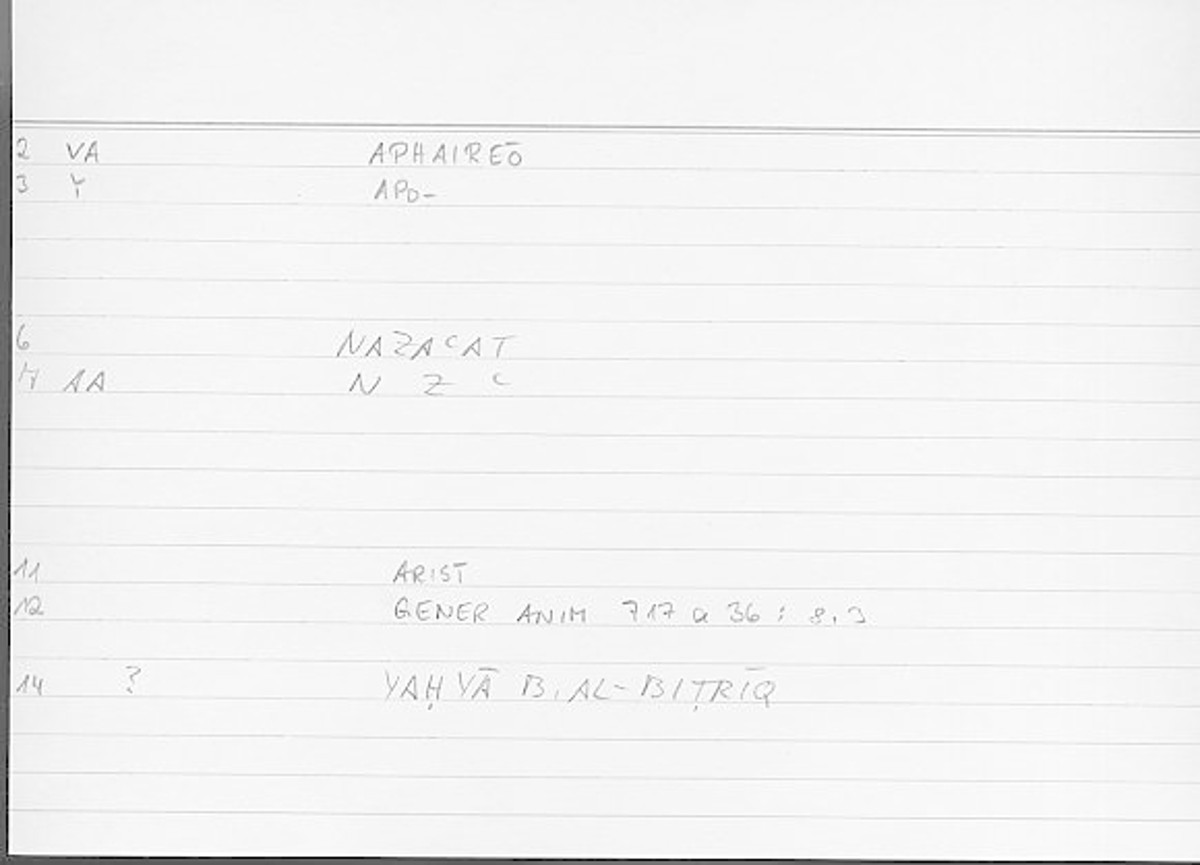 2 VA APHAIREŌ
3 Y APO-
6 NAZAᶜAT
AA N Z ᶜ
11 ARIST
12 GENER ANIM 717 a 36 : 8.3
14 ? YAḤYĀ B. AL-BIṬRĪQ